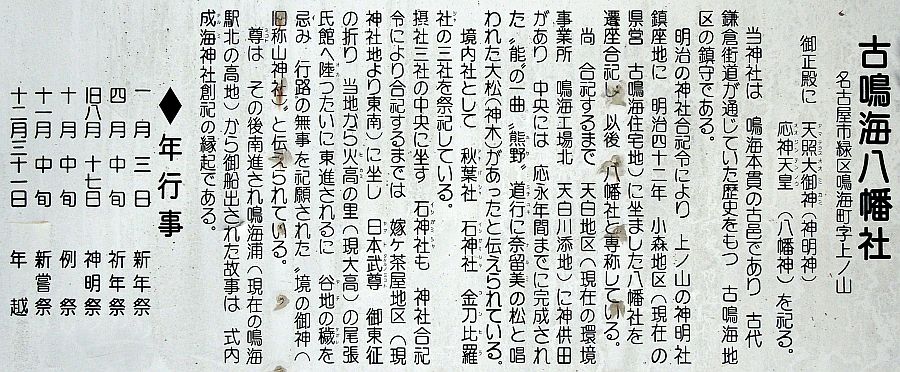 古鳴海八幡社
名古屋市緑区鳴海町字上ノ山
御正殿に 天照大御神(神明神)
応神天皇 (八幡神) を祀る。
当神社は 鳴海本貫の古邑であり 古代
鎌倉街道が通じていた歴史をもつ 古鳴海地
区の鎮守である。
明治の神社合祀令により 上ノ山の神明社
鎮座地に 明治四十二年 小森地区(現在の
県営 古鳴海住宅地)に坐ました八幡社を
遷座合祀し 以後 八幡社と専称している。
尚 合祀するまで 天白地区(現在の環境
事業所 鳴海工場北 天白川添地)に神供田
があり 中央には 応永年間までに完成され
た〝能〟の一曲〝熊野〟道行に奈留美の松と唱
われた大松(神木)があったと伝えられている。
境内社として 秋葉社 石神社 金刀比羅
社の三社を祭祀している。
摂社三社の中央に坐す 石神社も 神社合祀
令により合祀するまでは 嫁ヶ茶屋地区(現
神社地より東南)に坐し 日本武尊 御東征
の折り 当地から火高の里(現大高)の尾張
氏館へ陸つたいに東進されるに 谷地の穢を
忌み 行路の無事を祈願された〝境の御神(
旧称山神社)〟と伝えられている。
尊は その後南進され鳴海浦(現在の鳴海
駅北の高地)から御船出された故事は 式内
成海神社創祀の縁起である。
◆年行事
一月三日 新年祭
四月中旬 祈年祭
旧八月十七日 神明祭
十月中旬 例祭
十一月中旬 新嘗祭
十二月三十一日 年越